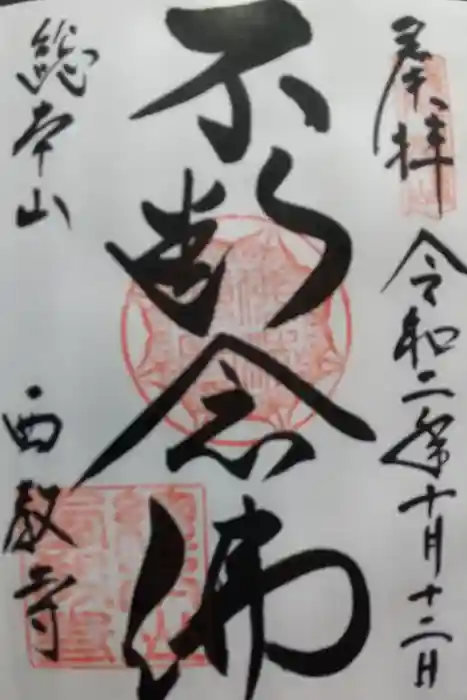 奉拝
令和二年十月十二日
不断念佛
総本山
西教寺